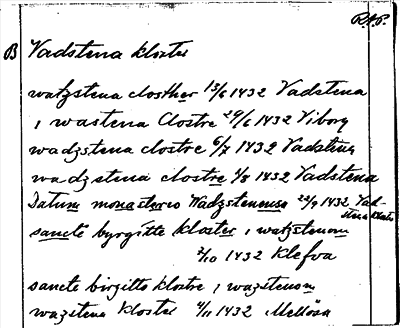 R.A.P.
B Vadstena kloster
watzstena closther 13/6 1432 Vadstena
i wastena Clostre 29/6 1432 Viborg
wadzstena clostre 6/7 1432 Vadstena
wadzstena clostre 1/8 1432 Vadstena
Datum monasterio Wadzstenensi 22/9 1432 Vad-
stena kloster
sancte byrgitte kloster i watzstenom
2/10 1432 Klefva
sancte birgitto klostre i wazstenom
wazstena kloster 4/11 1432 Mellösa